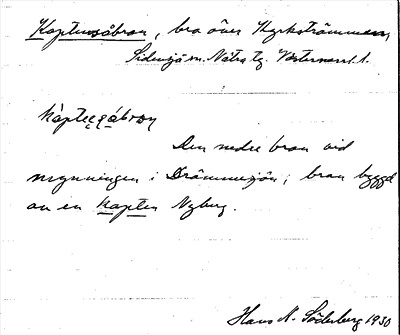 Kaptensåbron, bro över Kyrkströmmen,
Sidensjö sn. Nätra tg. Västernorrl. l.
Den nedre bron vid
mynningen i Drömmesjön; bron byggd
av en Kapten Nyberg.
Hans N. Söderberg 1930